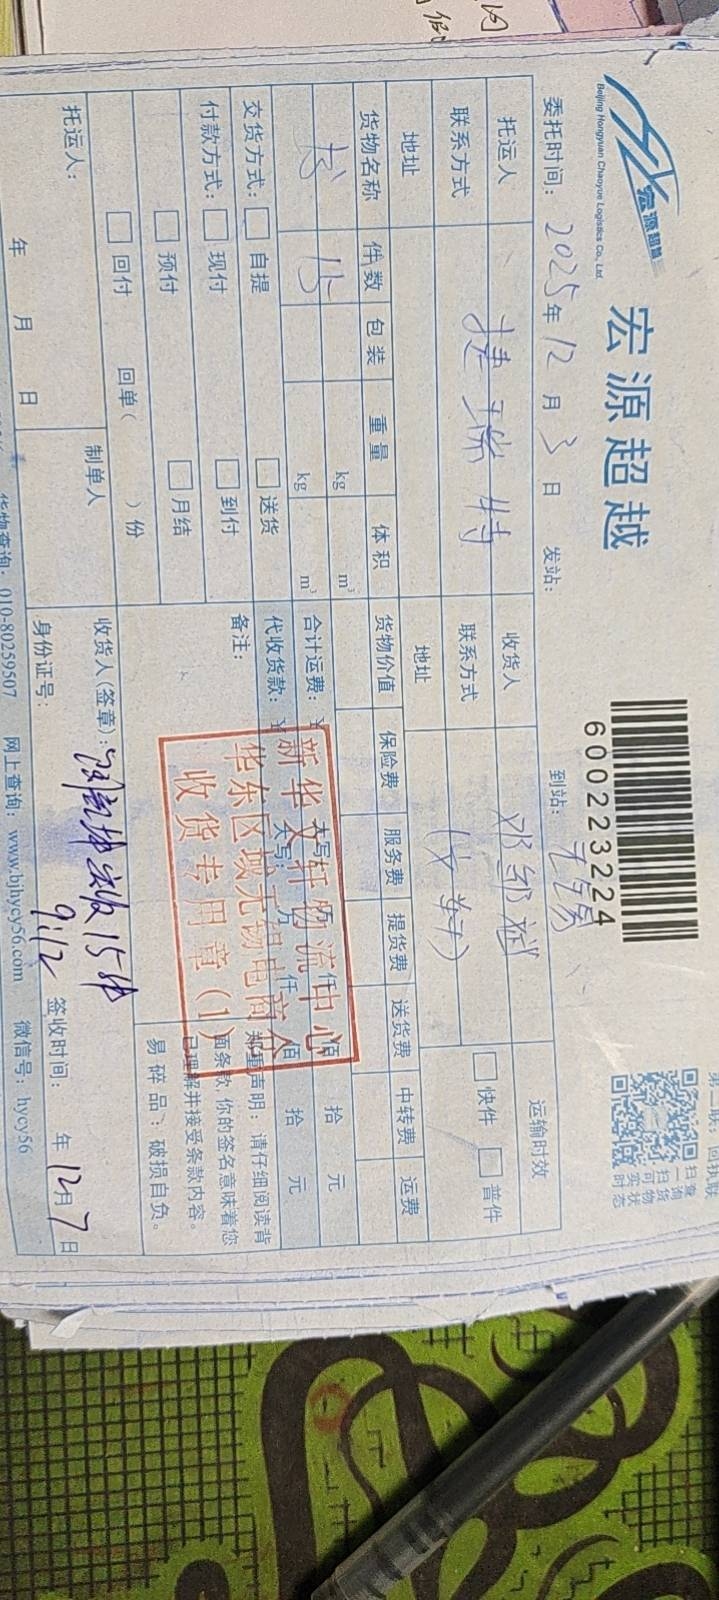 宏源超越
Beijing Hongyuan Chaoyue Logistics Co., Ltd.
宏源超越
600223224
第二联：回执联
扫一扫
查询货物
可实时状态
委托时间：2025年12月3日 发站： 到站：无锡
托运人 捷瑞特 收货人 邓邹斌 运输时效
联系方式 联系方式 (文轩) 快件 普件
地址 地址
货物名称 件数 包装 重量 体积 货物价值 保险费 服务费 提货费 送货费 中转费 运费
书 15 kg m³
kg m³
合计运费：¥ 大写： 万 仟 佰 拾 元
交货方式： 自提 送货 代收货款：¥ 大写： 万 仟 佰 拾 元
付款方式： 现付 到付 备注：
预付 月结
回付 回单( )份
郑重声明：请仔细阅读背面条款，你的签名意味着您已理解并接受条款内容。
易碎品：破损自负。
新华文轩物流中心
华东区域无锡电商仓
收货专用章(1)
托运人： 制单人 收货人(签章)： 实收15件
年 月 日 身份证号： 9:12 签收时间： 年12月7日
货物查询：010-80259507 网上查询：www.bjhycy56.com 微信号：hycy56